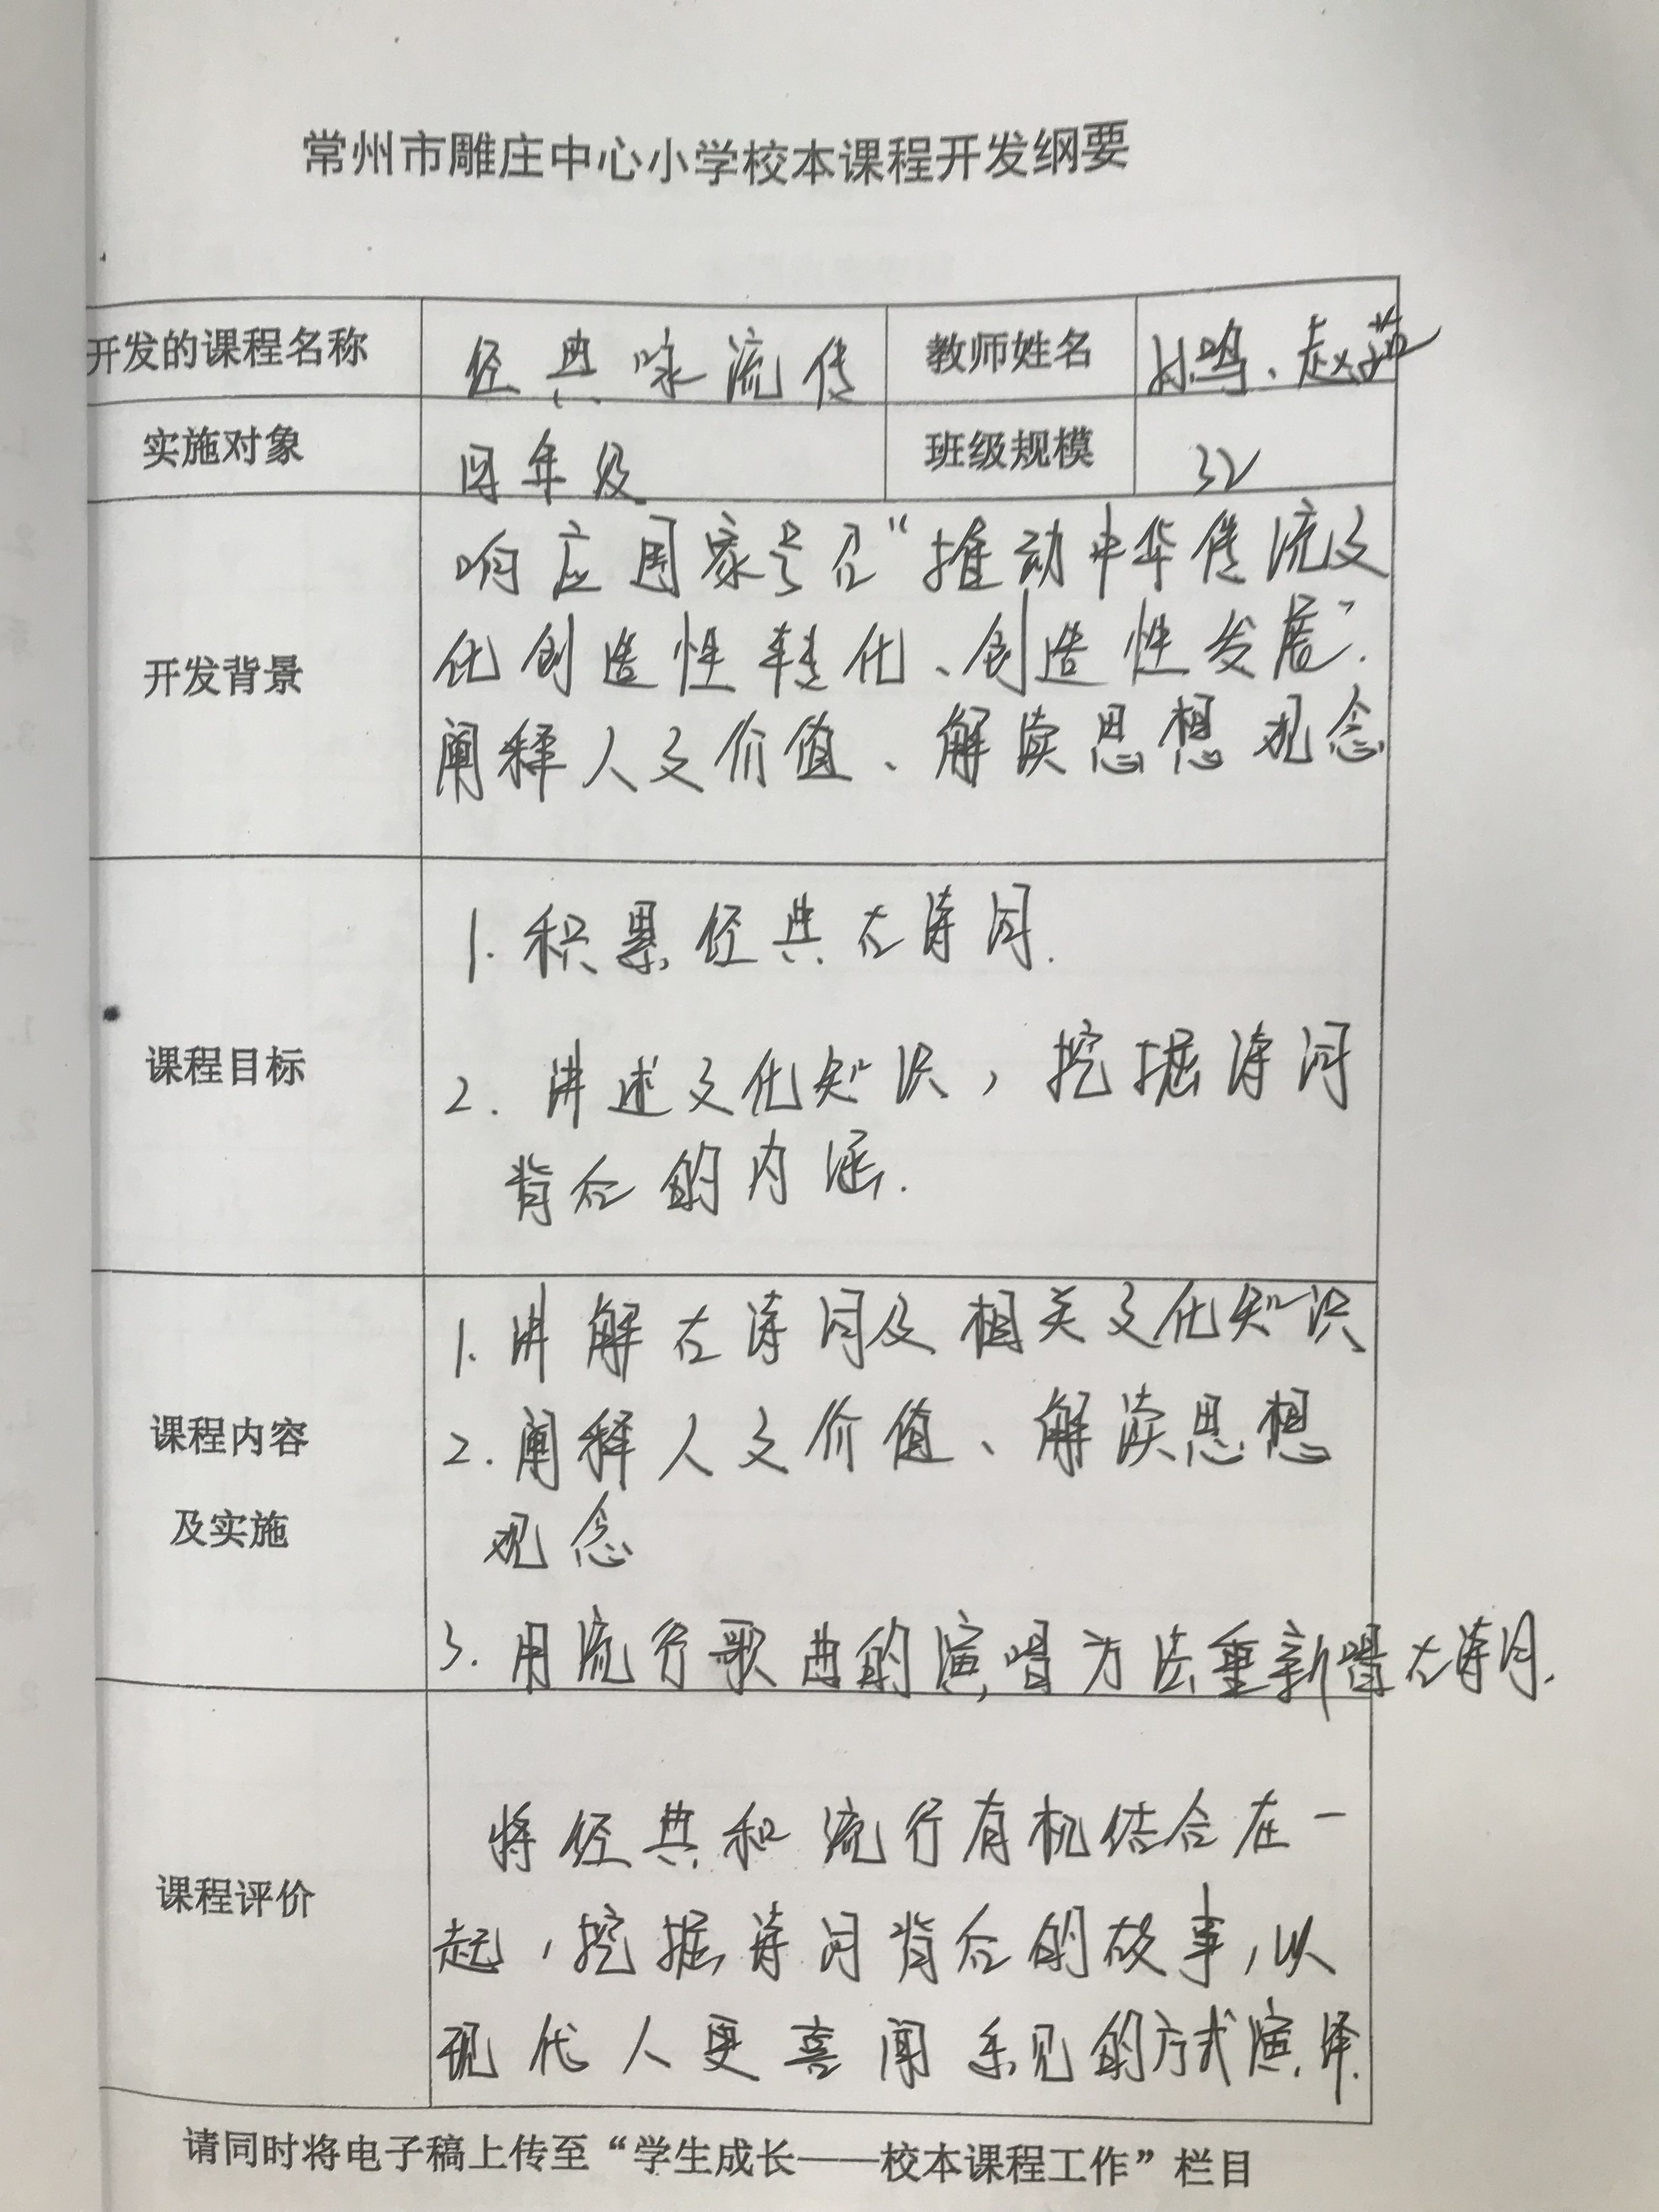 常州市雕庄中心小学校本课程开发纲要
开发的课程名称 经典咏流传 教师姓名 孙鸣、赵
实施对象 四年级 班级规模 32
响应国家号召“推动中华传统文
化创造性转化、创造性发展”.
开发背景
阐释人文价值、解读思想观念
1. 积累经典古诗词.
课程目标
2. 讲述文化知识，挖掘诗词
背后的内涵.
1. 讲解古诗词及相关文化知识
课程内容
2. 阐释人文价值、解读思想
及实施
观念
3. 用流行歌曲的演唱方法重新唱古诗词.
将经典和流行有机结合在一
课程评价
起，挖掘诗词背后的故事，以
现代人更喜闻乐见的方式演绎.
请同时将电子稿上传至“学生成长——校本课程工作”栏目